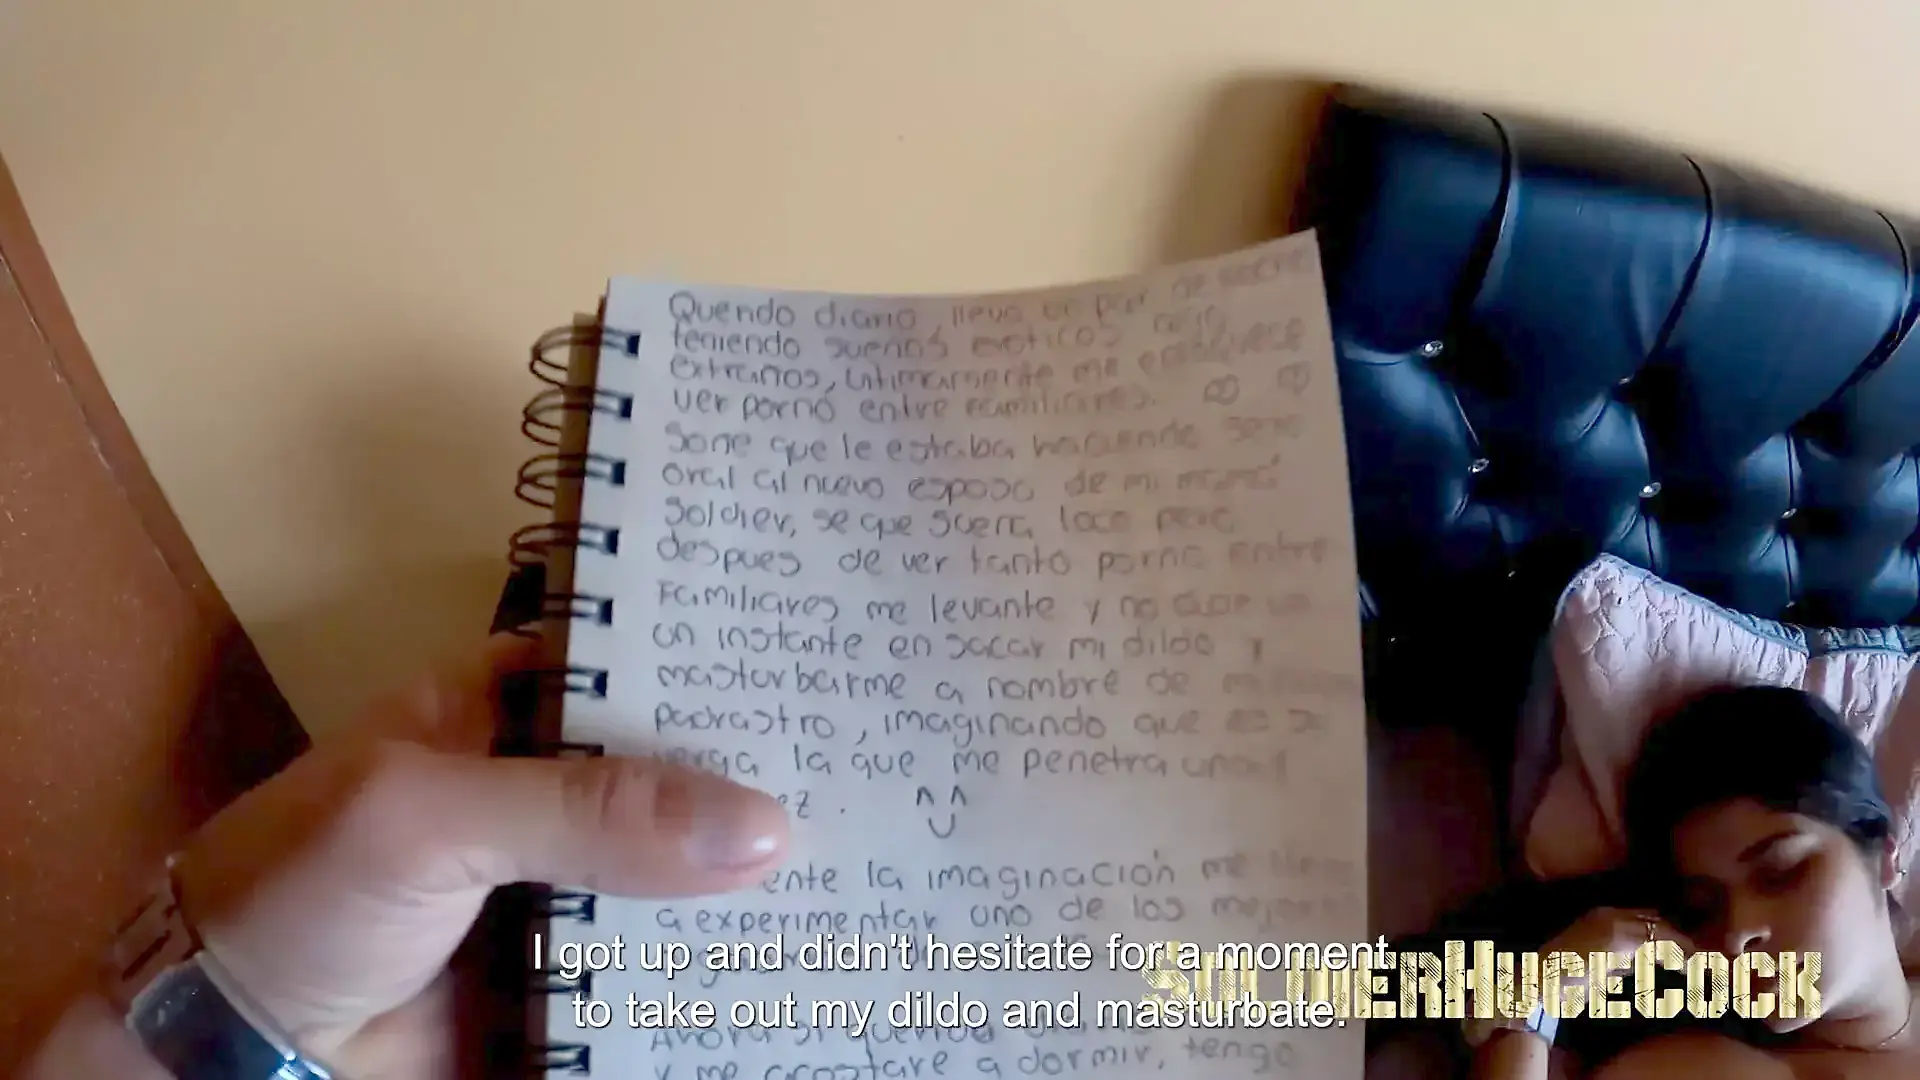 Quendo diario, llevo un par de noche
teniendo sueños eroticos
extraños, ultimamente me enloquece
ver porno entre familiares.
Soñe que le estaba haciendo sexo
oral al nuevo esposo de mi mamá
Soldier, se que suena loco pero
despues de ver tanto porno entre
Familiares me levante y no dude
un instante en sacar mi dildo y
masturbarme a nombre de mi
padrastro, imaginando que es su
verga la que me penetra
ez.
ente la imaginación me
a experimentar uno de los mejores
I got up and didn't hesitate for a moment
to take out my dildo and masturbate.
SOLDIERHUGECOCK
y me acostare a dormir, tengo